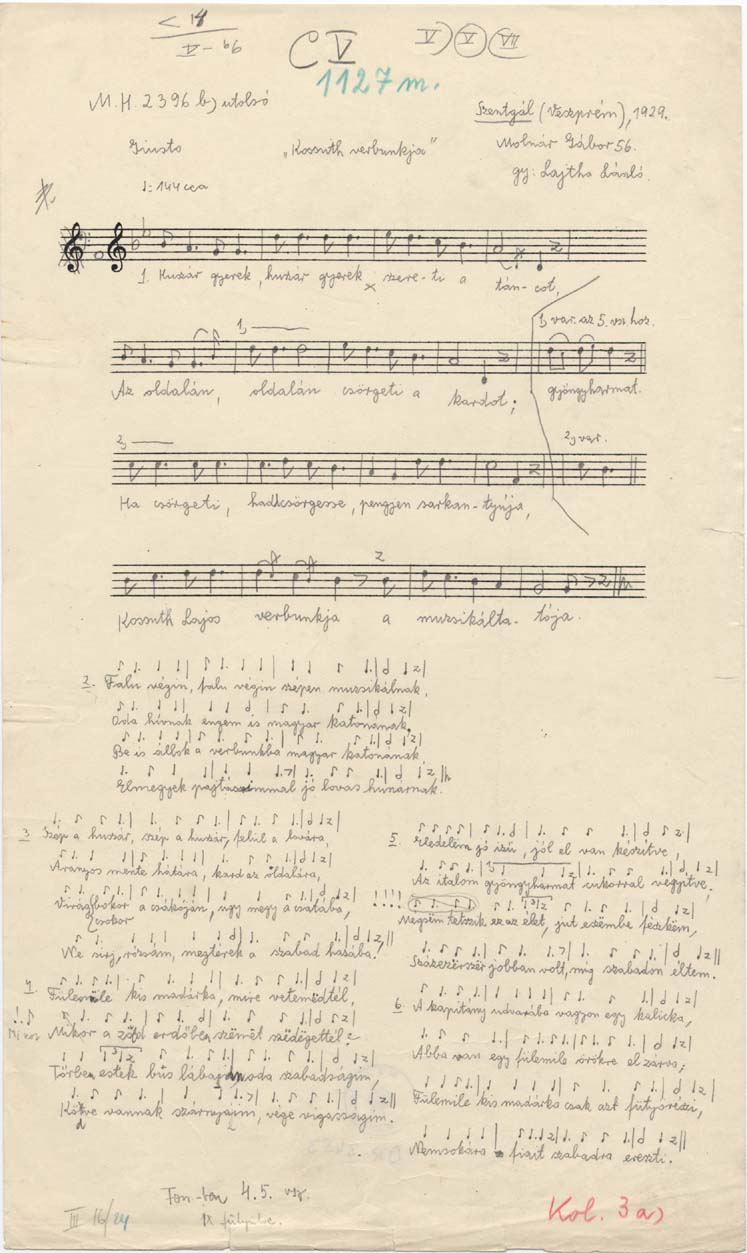 < 14
V – b6
C V
V) V VII
1127 m.
M.H. 2396 b) utolsó
Szentgál (Veszprém), 1929.
Giusto
„Kossuth verbunkja”
Molnár Gábor 56.
gy: Lajtha László.
♩= 144 cca
1. Huszár gyerek, huszár gyerek szere-ti a tán-cot,
1, var. az 5. vsz. hoz.
1,
Az oldalán, oldalán csörgeti a kardot;
gyöngyharmat.
2,
2, var.
Ha csörgeti, haddcsörgesse, pengjen sarkan-tyúja,
2
Kossuth Lajos verbunkja a muzsikálta-tója.
2. Falu végin, falu végin szépen muzsikálnak,
Oda hívnak engem is magyar katonának,
Be is állok a verbunkba magyar katonának,
Elmegyek pajtásimmal jó lovas huszárnak.
3. Szép a huszár, szép a huszár, felül a lovára,
Aranyos mente hátára, kard az oldalára,
Virágbokor a csákóján, úgy megy a csatába,
csokor
Ne sírj, rózsám, megtérek a szabad hazába!
4. Fülemüle kis madárka, mire vetemödtél,
Mikor a zöld erdőben szömöt szödögettél?
Tőrbe estek bús lábaim oda szabadságim,
Kötve vannak szárnyajim, vége vigasságim.
5. Eledelem jó izü, jól el van készitve,
Az italom gyöngyharmat cukorral vegyitve;
!!!! Mégsem tetszik ez az élet, jut eszembe fészkem,
Százezerszer jobban volt, mig szabadon éltem.
6. A kapitány udvarába vagyon egy kalicka,
Abba van egy fülemile örökre elzárva;
Fülemile kis madárka csak azt fütyörészi,
Nemsokára fiait szabadra ereszti.
Fon.-ban 4. 5. vsz.
III 16/24
Kol. 3 a)